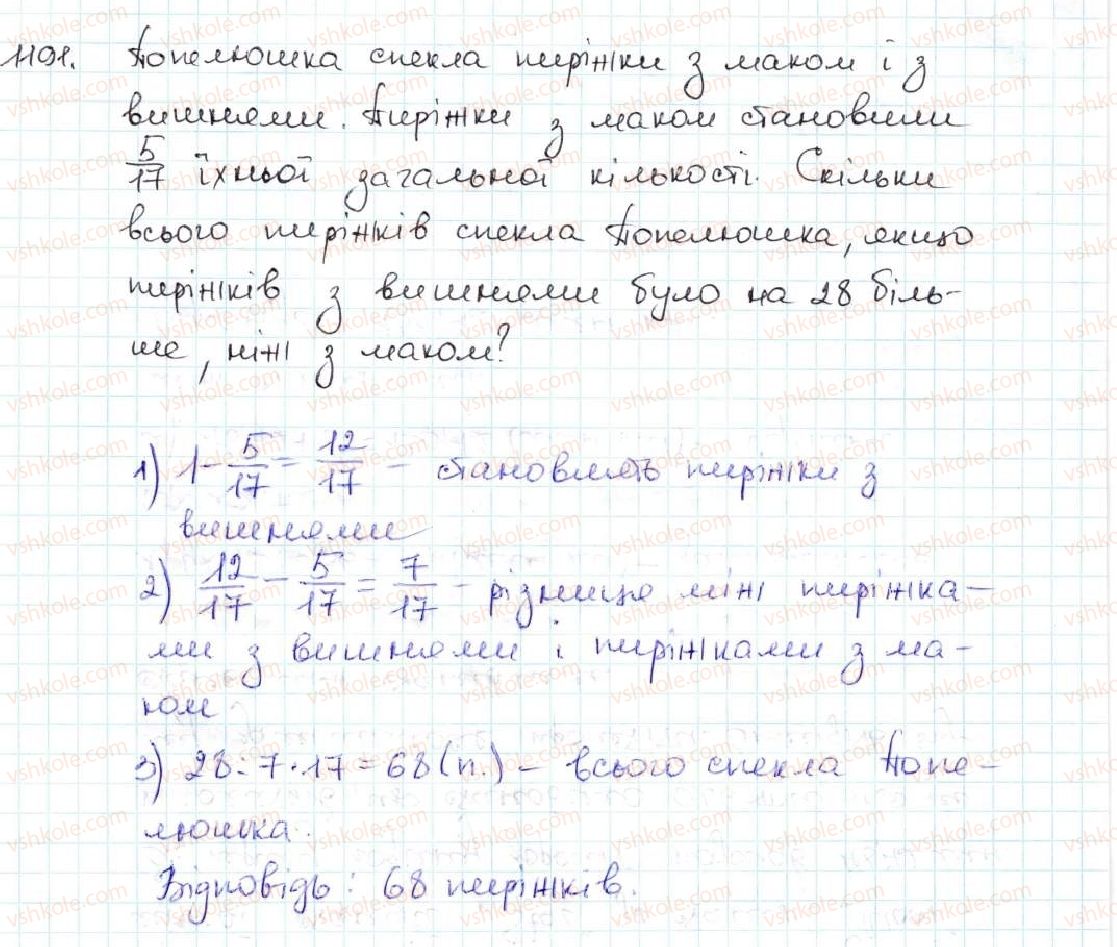 1191. Попелюшка спекла пиріжки з маком і з
вишнями. Пиріжки з маком становили
5/17 їхньої загальної кількості. Скільки
всього пиріжків спекла Попелюшка, якщо
пиріжків з вишнями було на 28 біль-
ше, ніж з маком?
1) 1 - 5/17 = 12/17 - становлять пиріжки з
вишнями
2) 12/17 - 5/17 = 7/17 - різниця між пиріжка-
ми з вишнями і пиріжками з ма-
ком
3) 28 : 7 · 17 = 68 (п.) - всього спекла Попе-
люшка.
Відповідь: 68 пиріжків.
vshkole.com